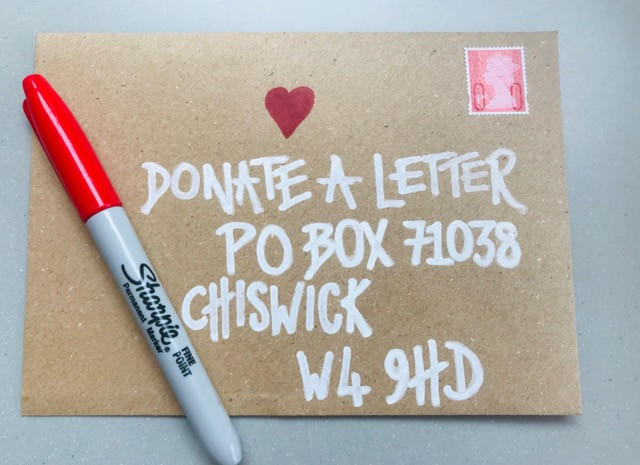 DONATE A LETTER
PO BOX 71038
CHISWICK
W4 9HD
Sharpie
Permanent Marker
FINE
POINT
1st